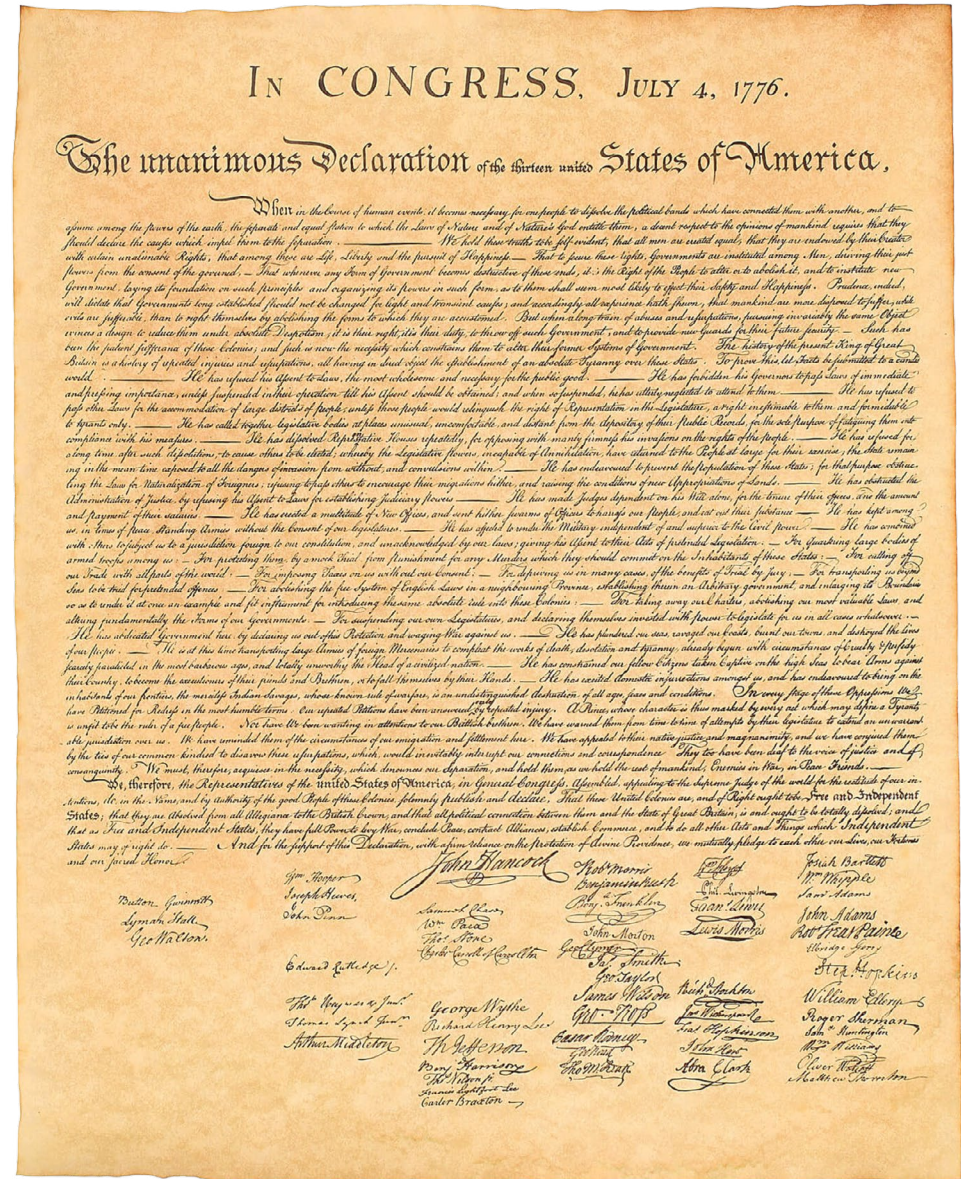 IN CONGRESS, JULY 4, 1776.
The unanimous Declaration of the thirteen united States of America,
When in the Course of human events, it becomes necessary for one people to dissolve the political bands which have connected them with another, and to
assume among the powers of the earth, the separate and equal station to which the Laws of Nature and of Nature's God entitle them, a decent respect to the opinions of mankind requires that they
should declare the causes which impel them to the separation. — We hold these truths to be self-evident, that all men are created equal, that they are endowed by their Creator
with certain unalienable Rights, that among these are Life, Liberty and the pursuit of Happiness. — That to secure these rights, Governments are instituted among Men, deriving their just
powers from the consent of the governed, — That whenever any Form of Government becomes destructive of these ends, it is the Right of the People to alter or to abolish it, and to institute new
Government, laying its foundation on such principles and organizing its powers in such form, as to them shall seem most likely to effect their Safety and Happiness. Prudence, indeed,
will dictate that Governments long established should not be changed for light and transient causes; and accordingly all experience hath shewn, that mankind are more disposed to suffer, while
evils are sufferable, than to right themselves by abolishing the forms to which they are accustomed. But when a long train of abuses and usurpations, pursuing invariably the same Object
evinces a design to reduce them under absolute Despotism, it is their right, it is their duty, to throw off such Government, and to provide new Guards for their future security. — Such has
been the patient sufferance of these Colonies; and such is now the necessity which constrains them to alter their former Systems of Government. The history of the present King of Great
Britain is a history of repeated injuries and usurpations, all having in direct object the establishment of an absolute Tyranny over these States. To prove this, let Facts be submitted to a candid
world. — He has refused his Assent to Laws, the most wholesome and necessary for the public good. — He has forbidden his Governors to pass Laws of immediate
and pressing importance, unless suspended in their operation till his Assent should be obtained; and when so suspended, he has utterly neglected to attend to them. — He has refused to
pass other Laws for the accommodation of large districts of people, unless those people would relinquish the right of Representation in the Legislature, a right inestimable to them and formidable
to tyrants only. — He has called together legislative bodies at places unusual, uncomfortable, and distant from the depository of their Public Records, for the sole purpose of fatiguing them into
compliance with his measures. — He has dissolved Representative Houses repeatedly, for opposing with manly firmness his invasions on the rights of the people. — He has refused for
a long time, after such dissolutions, to cause others to be elected; whereby the Legislative powers, incapable of Annihilation, have returned to the People at large for their exercise; the State remain
ing in the mean time exposed to all the dangers of invasion from without, and convulsions within. — He has endeavoured to prevent the population of these States; for that purpose obstruc
ting the Laws for Naturalization of Foreigners; refusing to pass others to encourage their migrations hither, and raising the conditions of new Appropriations of Lands. — He has obstructed the
Administration of Justice, by refusing his Assent to Laws for establishing Judiciary powers — He has made Judges dependent on his Will alone, for the tenure of their offices, and the amount
and payment of their salaries — He has erected a multitude of New Offices, and sent hither swarms of Officers to harrass our people, and eat out their substance — He has kept among
us, in times of peace, Standing Armies without the Consent of our legislatures — He has affected to render the Military independent of and superior to the Civil power — He has combined
with others to subject us to a jurisdiction foreign to our constitution, and unacknowledged by our laws; giving his Assent to their Acts of pretended Legislation: — For Quartering large bodies of
armed troops among us: — For protecting them, by a mock Trial, from punishment for any Murders which they should commit on the Inhabitants of these States: — For cutting off
our Trade with all parts of the world: — For imposing Taxes on us without our Consent: — For depriving us in many cases, of the benefits of Trial by Jury; — For transporting us beyond
Seas to be tried for pretended offences — For abolishing the free System of English Laws in a neighbouring Province, establishing therein an Arbitrary government, and enlarging its Boundaries
so as to render it at once an example and fit instrument for introducing the same absolute rule into these Colonies: — For taking away our Charters, abolishing our most valuable Laws, and
altering fundamentally the Forms of our Governments: — For suspending our own Legislatures, and declaring themselves invested with power to legislate for us in all cases whatsoever. —
He has abdicated Government here, by declaring us out of his Protection and waging War against us. — He has plundered our seas, ravaged our Coasts, burnt our towns, and destroyed the lives
of our people. — He is at this time transporting large Armies of foreign Mercenaries to compleat the works of death, desolation and tyranny, already begun with circumstances of Cruelty & perfidy
scarcely paralleled in the most barbarous ages, and totally unworthy the Head of a civilized nation. — He has constrained our fellow Citizens taken Captive on the high Seas to bear Arms against
their Country, to become the executioners of their friends and Brethren, or to fall themselves by their Hands. — He has excited domestic insurrections amongst us, and has endeavoured to bring on the
inhabitants of our frontiers, the merciless Indian Savages, whose known rule of warfare, is an undistinguished destruction of all ages, sexes and conditions. In every stage of these Oppressions We
have Petitioned for Redress in the most humble terms: Our repeated Petitions have been answered only by repeated injury. A Prince, whose character is thus marked by every act which may define a Tyrant,
is unfit to be the ruler of a free people. Nor have We been wanting in attentions to our Brittish brethren. We have warned them from time to time of attempts by their legislature to extend an unwarrant
able jurisdiction over us. We have reminded them of the circumstances of our emigration and settlement here. We have appealed to their native justice and magnanimity, and we have conjured them
by the ties of our common kindred to disavow these usurpations, which, would inevitably interrupt our connections and correspondence They too have been deaf to the voice of justice and of
consanguinity. We must, therefore, acquiesce in the necessity, which denounces our Separation, and hold them, as we hold the rest of mankind, Enemies in War, in Peace Friends. —
We, therefore, the Representatives of the united States of America, in General Congress, Assembled, appealing to the Supreme Judge of the world for the rectitude of our in
tentions, do, in the Name, and by Authority of the good People of these Colonies, solemnly publish and declare, That these United Colonies are, and of Right ought to be Free and Independent
States; that they are Absolved from all Allegiance to the British Crown, and that all political connection between them and the State of Great Britain, is and ought to be totally dissolved; and
that as Free and Independent States, they have full Power to levy War, conclude Peace, contract Alliances, establish Commerce, and to do all other Acts and Things which Independent
States may of right do. — And for the support of this Declaration, with a firm reliance on the protection of divine Providence, we mutually pledge to each other our Lives, our Fortunes
and our sacred Honor.
Button Gwinnett
Lyman Hall
Geo Walton.
Wm Hooper
Joseph Hewes,
John Penn
Edward Rutledge /.
Thos Heyward Junr.
Thomas Lynch Junr.
Arthur Middleton
John Hancock
Samuel Chase
Wm Paca
Thos Stone
Charles Carroll of Carrollton
George Wythe
Richard Henry Lee
Th Jefferson
Benj Harrison
Thos Nelson jr
Francis Lightfoot Lee
Carter Braxton
Robt Morris
Benjamin Rush
Benj Franklin
John Morton
Geo Clymer
Jas Smith
Geo Taylor
James Wilson
Geo Ross
Caesar Rodney
Geo Read
Tho M:Kean
Wm Floyd
Phil. Livingston
Frans. Lewis
Lewis Morris
Richd Stockton
Jno Witherspoon
Fras Hopkinson
John Hart
Abra Clark
Josiah Bartlett
Wm Whipple
Saml Adams
John Adams
Robt Treat Paine
Elbridge Gerry
Step. Hopkins
William Ellery
Roger Sherman
Saml Huntington
Wm Williams
Oliver Wolcott
Matthew Thornton